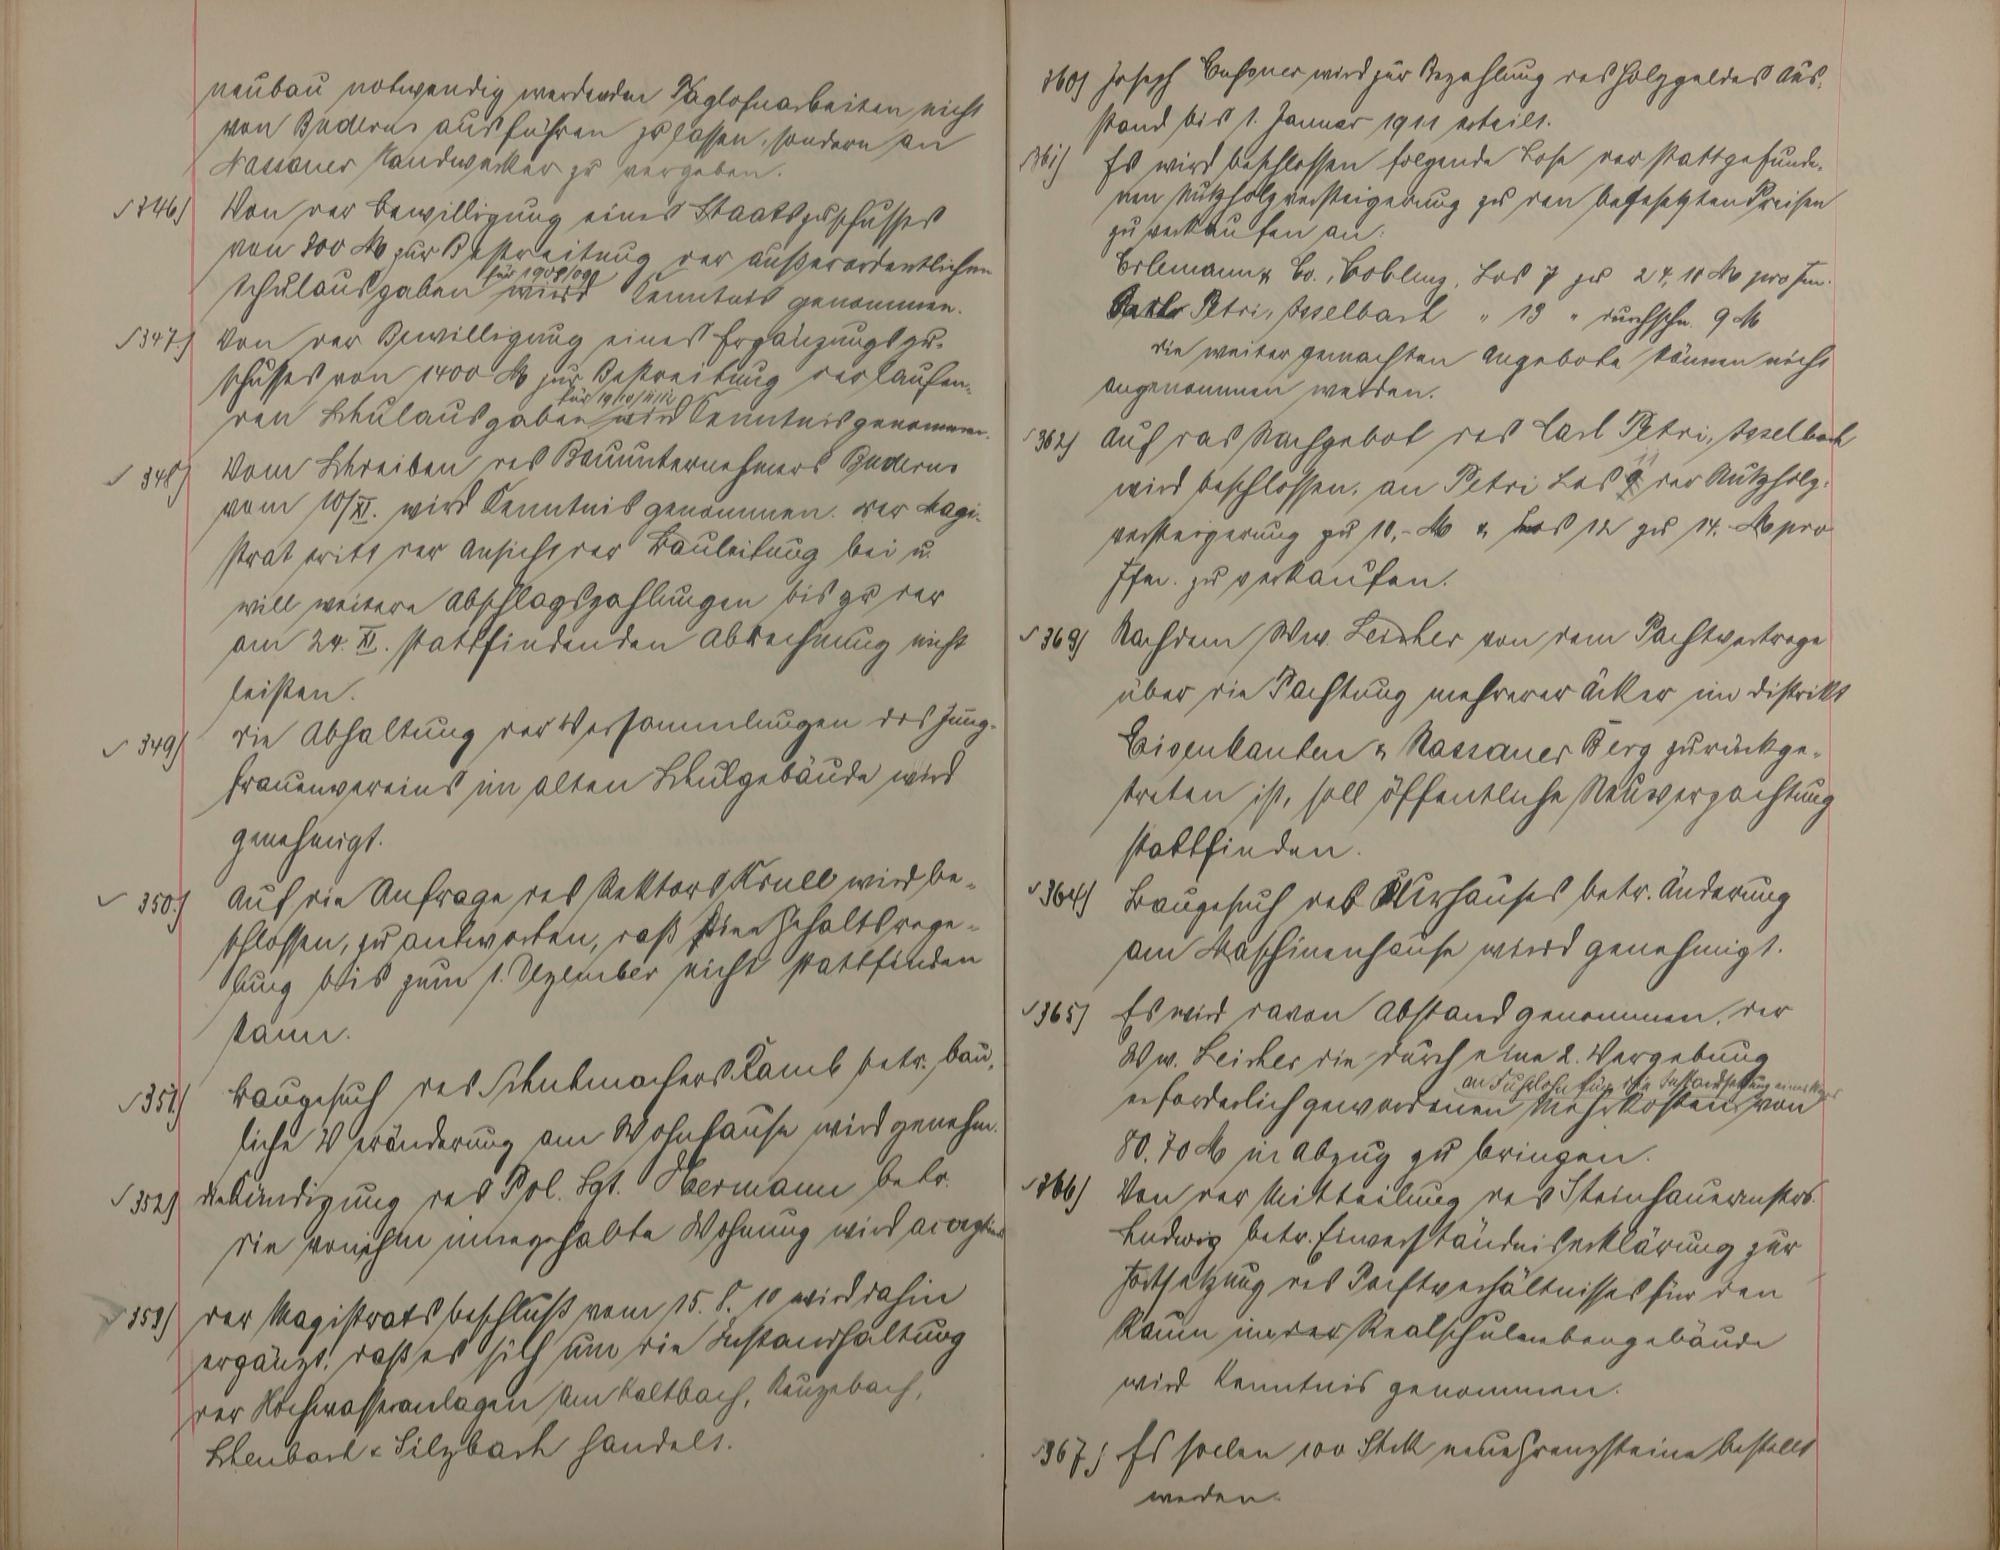 neubau notwendig werdenden Taglohnarbeiten nicht
von Buderus ausführen zu lassen, sondern an
Nassauer Handwerker zu vergeben.
346) Von der Bewilligung eines Staatszuschusses
von 800 M zur Bestreitung der außerordentlichen
für 1908/09
Schulausgaben wird Kenntnis genommen.
347) Von der Bewilligung eines Ergänzungszu-
schusses von 1400 M zur Bestreitung der laufen-
für 1910/11/12
den Schulausgaben wird Kenntnis genommen.
348) Vom Schreiben des Bauunternehmers Buderus
vom 10/XI. wird Kenntnis genommen. Der Magi-
strat tritt der Ansicht der Bauleitung bei u.
will weitere Abschlagszahlungen bis zu der
am 24. XI. stattfindenden Abrechnung nicht
leisten.
349) Die Abhaltung der Versammlungen des Jung-
frauenvereins im alten Schulgebäude wird
genehmigt.
350.) Auf die Anfrage des Rektors Krull wird be-
schlossen, zu antworten, daß eine Gehaltsrege-
lung bis zum 1. Dezember nicht stattfinden
kann.
351.) Baugesuch des Schuhmachers Kamb betr. bau-
liche Veränderung am Wohnhause wird genehm.
352) Die Kündigung des Pol. Sgt. Hermann betr.
die von ihm innegehabte Wohnung wird acceptiert
353) Der Magistratsbeschluß vom 15. 8. 10 wird dahin
ergänzt, daß es sich um die Instandhaltung
der Hochwasseranlagen am Kaltbach,
& Silzbach handelt.
360) Joseph wird zur Bezahlung des Holzgeldes Aus-
stand bis 1. Januar 1911 erteilt.
361) Es wird beschlossen folgende Lose der stattgefunde-
nen Nutzholzversteigerung zu den beigesetzten Preisen
zu verkaufen an:
Erlemann & Co., Coblenz, Los 7 zu 24,10 M pro Fm.
Carl Petri, Isselbach " 13 " durchschn. 9 M
Die weiter gemachten Angebote können nicht
angenommen werden.
362) Auf das Nachgebot des Carl Petri, Isselbach
wird beschlossen, an Petri Los 11 der Nutzholz-
versteigerung zu 10,- M & Los 12 zu 14.- M pro
Ffm. zu verkaufen.
363) Nachdem Ww. Leicher von dem Pachtvertrage
über die Pachtung mehrerer Äcker im Distrikt
& Nassauer Berg zurückge-
treten ist, soll öffentliche Neuverpachtung
stattfinden.
364) Baugesuch des Kurhauses betr. Änderung
am Maschinenhause wird genehmigt.
365) Es wird davon Abstand genommen, der
Ww. Leicher die durch eine 2. Vergebung
an Fuhrlohn für die Instandsetzung eines Weges
erforderlich gewordenen Mehrkosten von
80.70 M in Abzug zu bringen.
366) Von der Mitteilung des Steinhauermstrs.
Ludwig betr. Einverständniserklärung zur
Fortsetzung des Pachtverhältnisses für den
Raum im Realschulnebengebäude
wird Kenntnis genommen.
367) Es sollen 100 Stck neue Grenzsteine bestellt
werden.